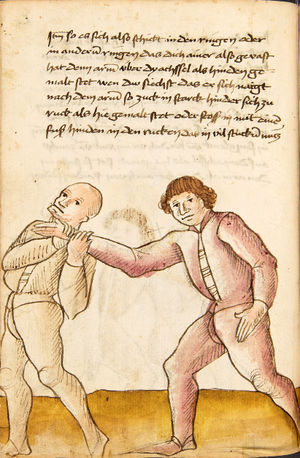 Item so es sich also schickt in den ringen oder
in andern ringen das dich ainer also gefast
hat dein arm uber dy achssel als hinden ge
malt stet wen du siechst das er sich naigt
nach dem arm so zuck in starck hinder sich zu
ruck als hie gemalt stet oder stos in mit eim
fus hinden in den rucken das in vil stucken